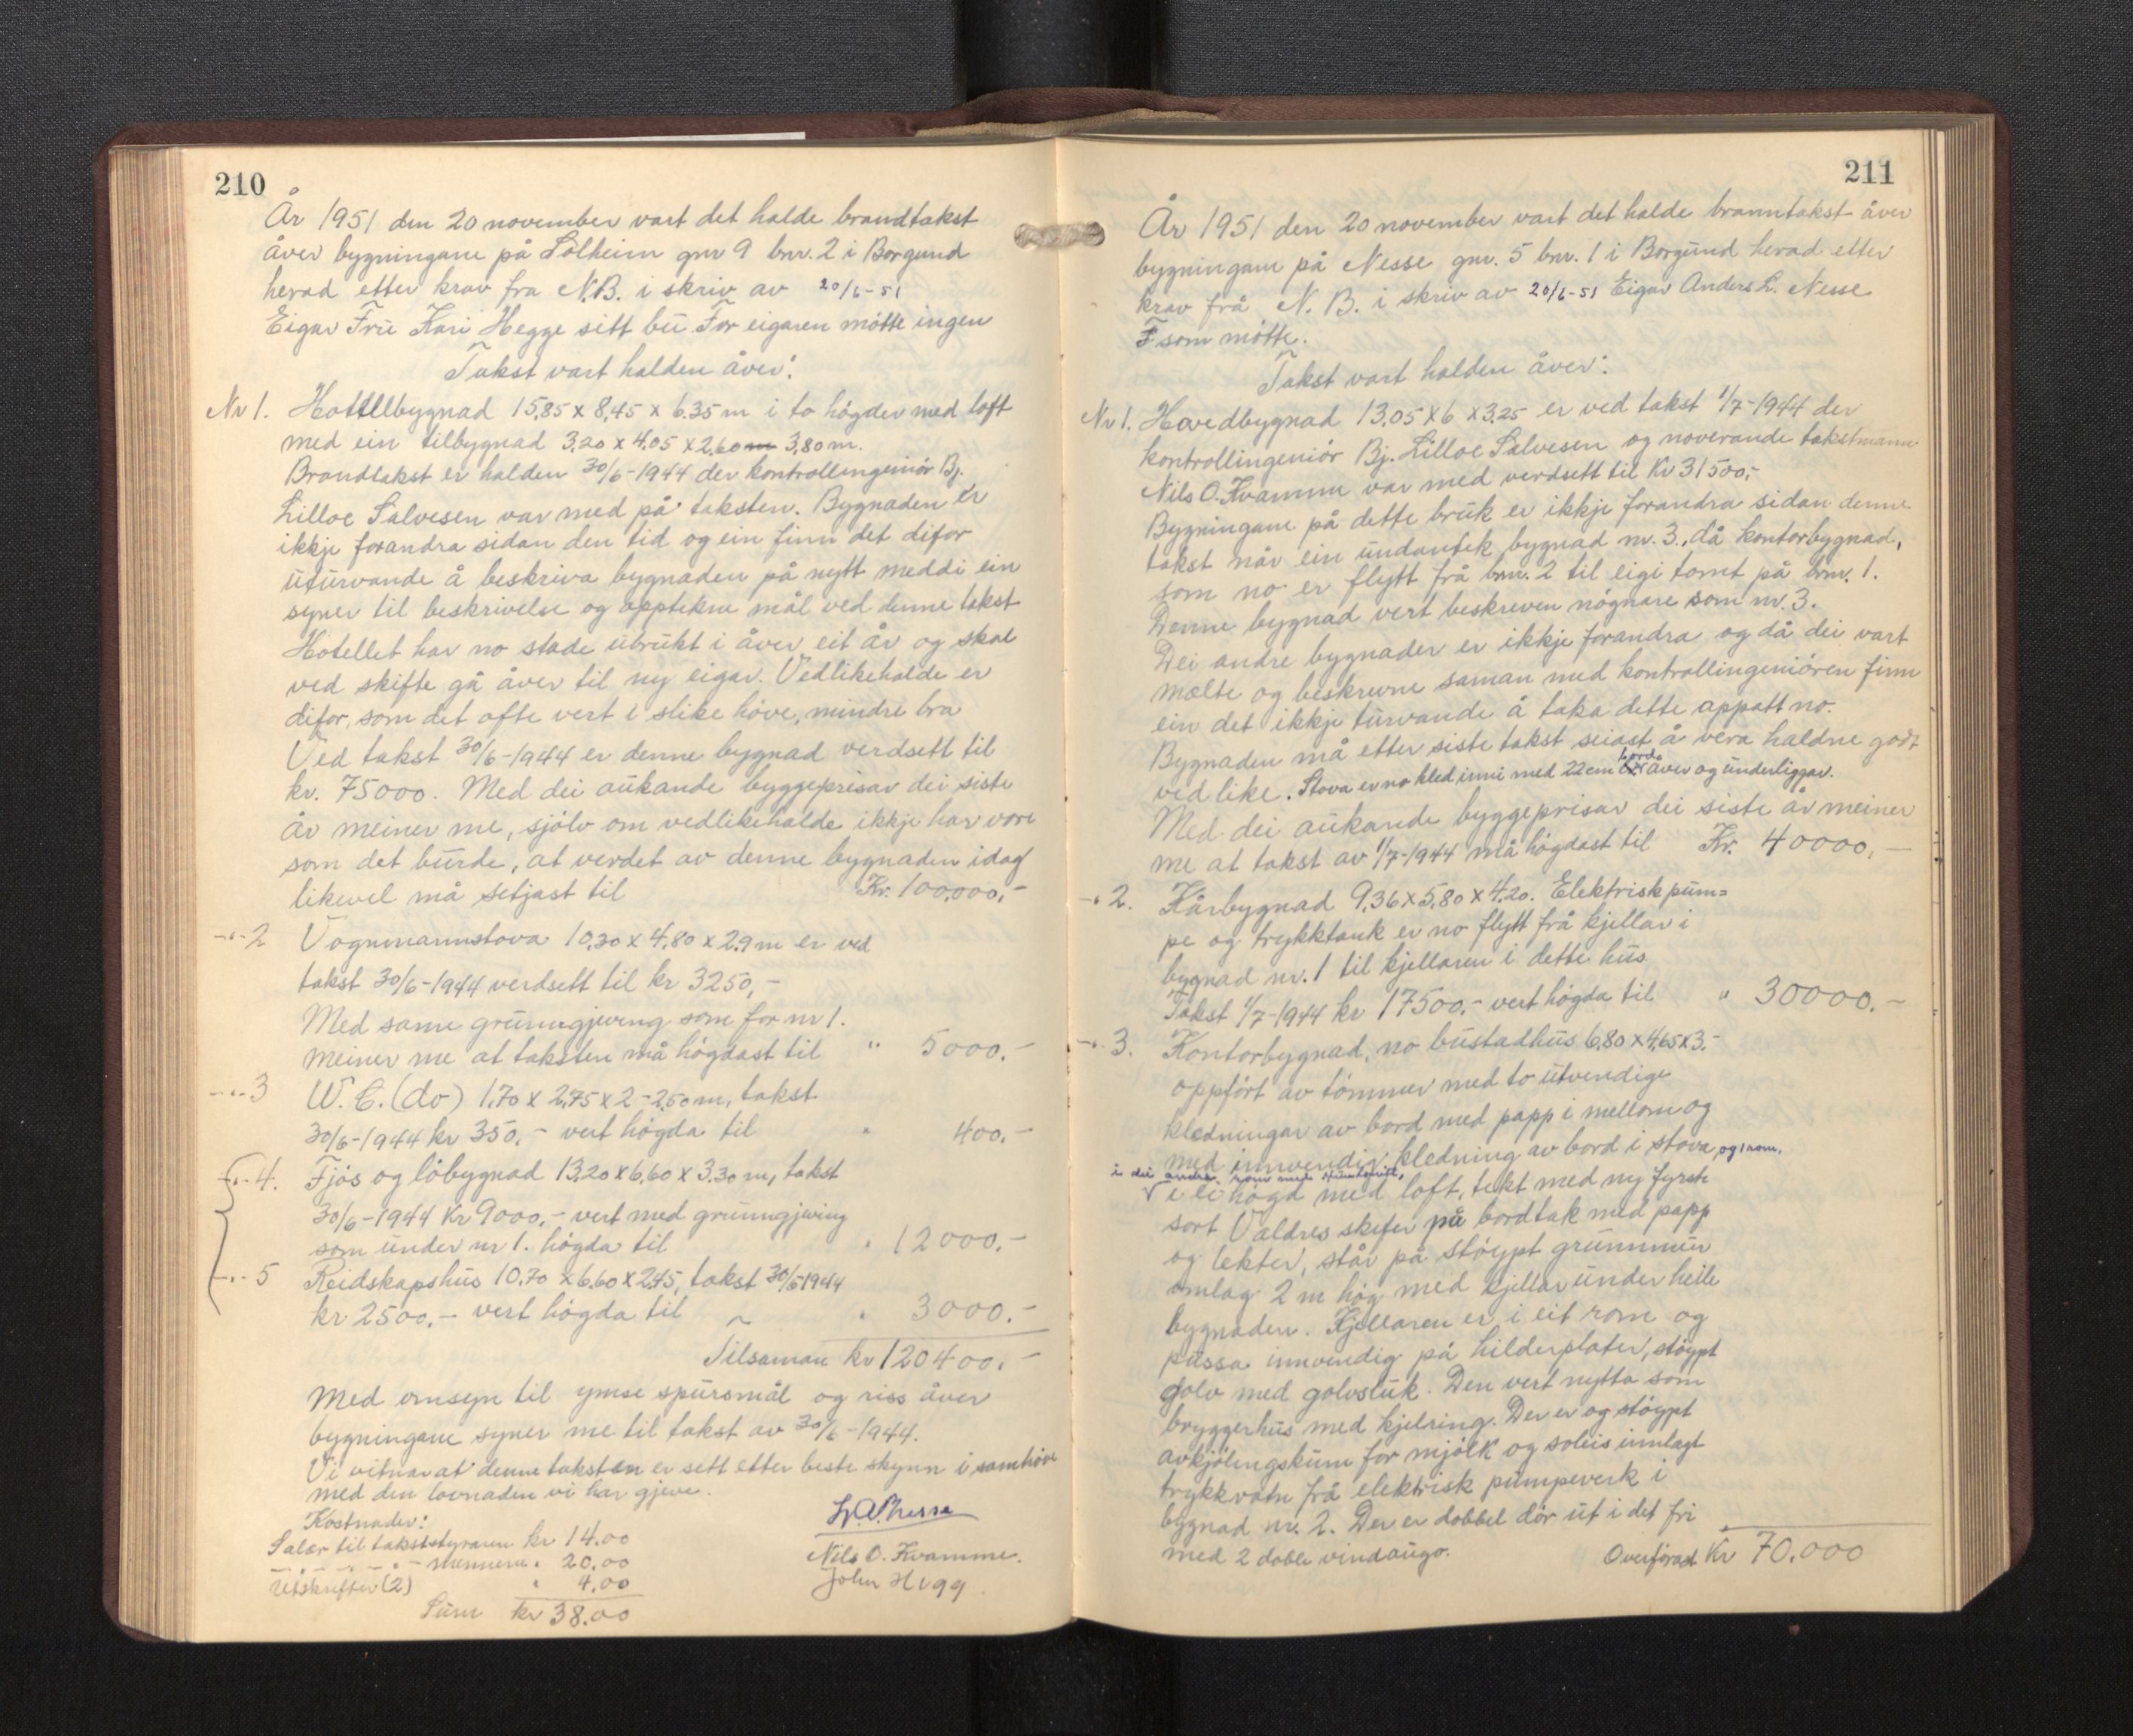 210
År 1951 den 20 november vart det halde brandtakst
åver bygningane på Solheim gnr 9 bnr. 2 i Borgund
herad etter krav fra N.B. i skriv av 20/6-51
Eigar Frü Kari Hegge sitt bu. For eigaren møtte ingen
Takst vart halden åver:
Nr 1. Hotellbygnad 15,85 x 8,45 x 6.35 m i to høgder med loft
med ein tilbygnad 3,20 x 4,05 x 2,60 m 3,80 m.
Brandtakst er halden 30/6-1944 der kontrollingeniør Bj.
Lilloe Salvesen var med på taksten. Bygnaden er
ikkje forandra sidan den tid og ein finn det difor
uturvande å beskriva bygnaden på nytt meddi ein
syner til beskrivelse og opptekne mål ved denne takst
Hotellet har no stade ubrukt i åver eit år og skal
ved skifte gå åver til ny eigar. Vedlikehalde er
difor, som det ofte vert i slike høve, mindre bra
Ved takst 30/6-1944 er denne bygnad verdsett til
kr. 75000. Med dei aukande byggeprisar dei siste
år meiner me, sjølv om vedlikehalde ikkje har vore
som det burde, at verdet av denne bygnaden idag
likevel må setjast til Kr. 100,000,-
-"-2 Vognmannstova 10,30 x 4,80 x 2.9 m er ved
takst 30/6-1944 verdsett til kr 3250,-
Med same grunngjeving som for nr 1.
meiner me at taksten må høgdast til " 5000.-
-"-3 W.C. (do) 1,70 x 2,75 x 2-2,50 m, takst
30/6-1944 kr 350,- vert høgda til " 400.-
-"-4. Fjøs og løbygnad 13,20 x 6,60 x 3.30 m, takst
30/6-1944 Kr 9000.- vert med grunngjeving
som under nr 1. høgda til " 12000.-
-"-5 Reidskapshus 10.70 x 6.60 x 2.45, takst 30/6 1944
kr 2500.- vert høgda til " 3000.-
Tilsaman kr 120400.-
Med omsyn til ymse spursmål og riss åver
bygningane syner me til takst av 30/6-1944.
Vi vitnar at denne taksten er sett etter beste skynn i samhøve
med den lovnaden vi har gjeve.
Kostnader:
Salær til takststyraren kr 14.00
-"- -"- mennene " 20,00
Utskrifter (2) " 4,00
Sum kr 38.00
Nils O. Kvamme.
John Hegg
211
År 1951 den 20 november vart det halde branntakst åver
bygningane på Nesse gnr. 5 bnr. 1 i Borgund herad etter
krav frå N. B. i skriv av 20/6-51 Eigar Anders L. Nesse
som møtte.
Takst vart halden åver:
Nr 1. Hovedbygnad 13.05 x 6 x 3.25 er ved takst 1/7-1944 der
kontrollingeniør Bj. Lilloe Salvesen og noverande takstmann
Nils O. Kvamme var med verdsett til Kr 31500,-
Bygningane på dette bruk er ikkje forandra sidan denne
takst når ein undantek bygnad nr. 3., då kontorbygnad,
som no er flytt frå bnr. 2 til eigi tomt på bnr. 1.
Denne bygnad vert beskreven nøgnare som nr. 3.
Dei andre bygnader er ikkje forandra og då dei vart
mælte og beskrevne saman med kontrollingeniøren finn
ein det ikkje turvande å taka dette oppatt no.
Bygnaden må etter siste takst seiast å vera haldne godt
ved like. Stova er no kled inni med 22 cm bord åver og underliggar.
Med dei aukande byggeprisar dei siste år meiner
me at takst av 1/7-1944 må høgdast til Kr. 40000,-
-"2. Kårbygnad 9,36 x 5,80 x 4,20. Elektrisk pum=
pe og trykktank er no flytt frå kjellar i
bygnad nr. 1 til kjellaren i dette hus
Takst 1/7-1944 kr 17500.- vert høgda til " 30000.-
-"3. Kontorbygnad, no bustadhus 6,80 x 4,65 x 3.-
oppført av tømmer med to utvendige
kledningar av bord med papp i mellom og
med innvendig kledning av bord i stova, og 1 rom.
i dei andre rom med
i ei høgd med loft, tekt med ny fyrste
sort Valdres skifer på bordtak med papp
og lekter, står på støypt grunnmur
omlag 2 m høg med kjellar under heile
bygnaden. Kjellaren er i eit rom og
pussa innvendig på hilderplater, støypt
golv med golvsluk. Den vert nytta som
bryggerhus med kjelring. Der er og støypt
avkjølingskum for mjølk og soleis innlagt
trykkvatn frå elektrisk pumpeverk i
bygnad nr. 2. Der er dobbel dør ut i det fri
med 2 doble vindaugo. Overførad Kr 70.000